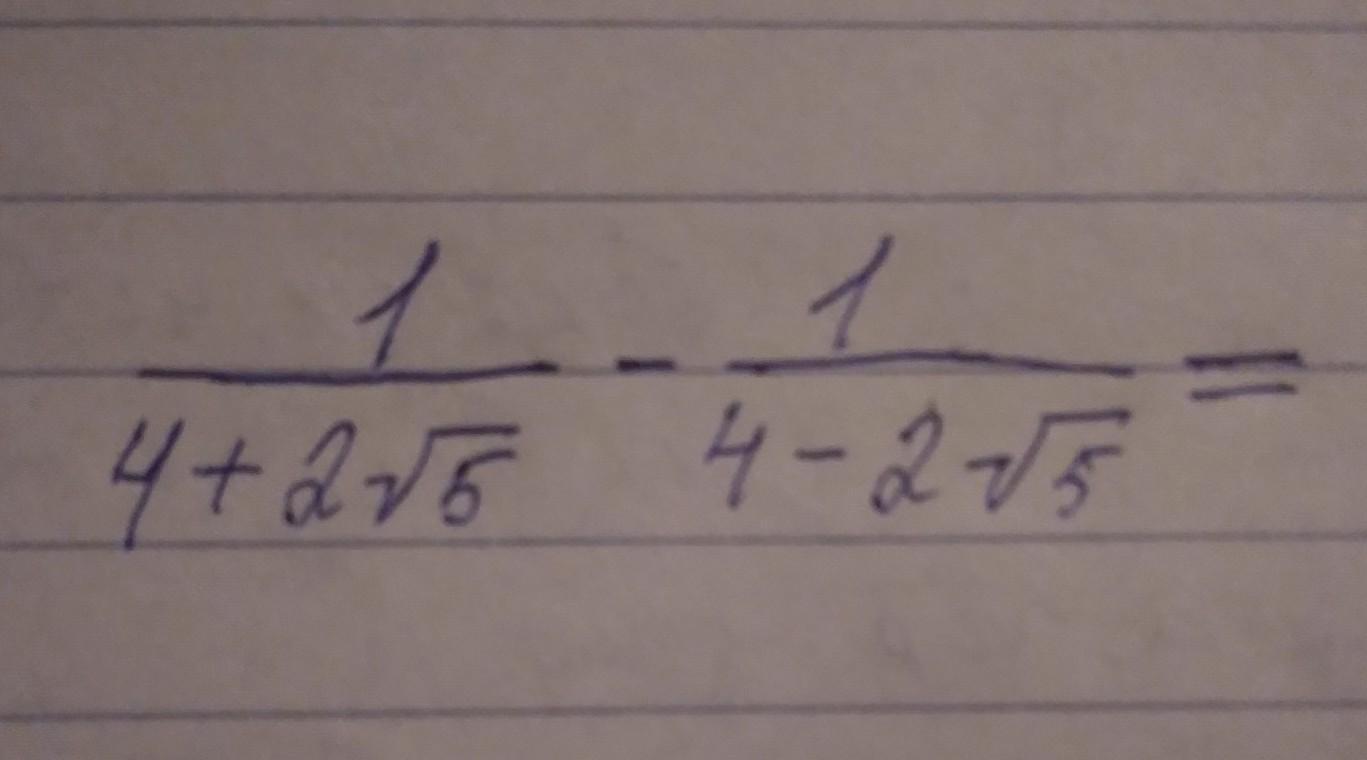 \frac{1}{4+2\sqrt{5}} - \frac{1}{4-2\sqrt{5}} =